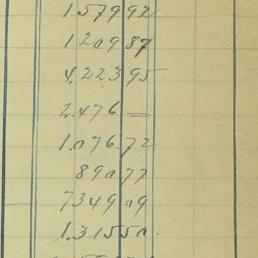 1.579 92
1 209 87
4.223 95
2.476 —
1.076 72
890 77
7349 09
1.315 50.